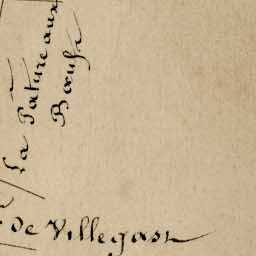 La Pature aux
Bœufs
de Villegast